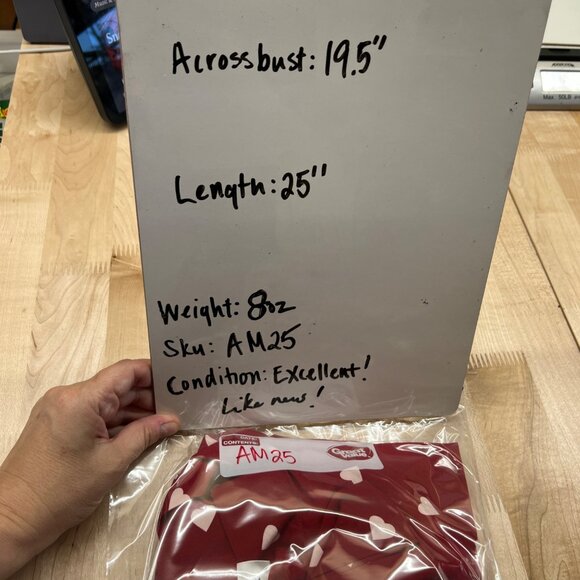 Across bust: 19.5"
Length: 25"
Weight: 8oz
Sku: AM25
Condition: Excellent!
Like new!
DATE:
CONTENTS:
AM25
Great Value